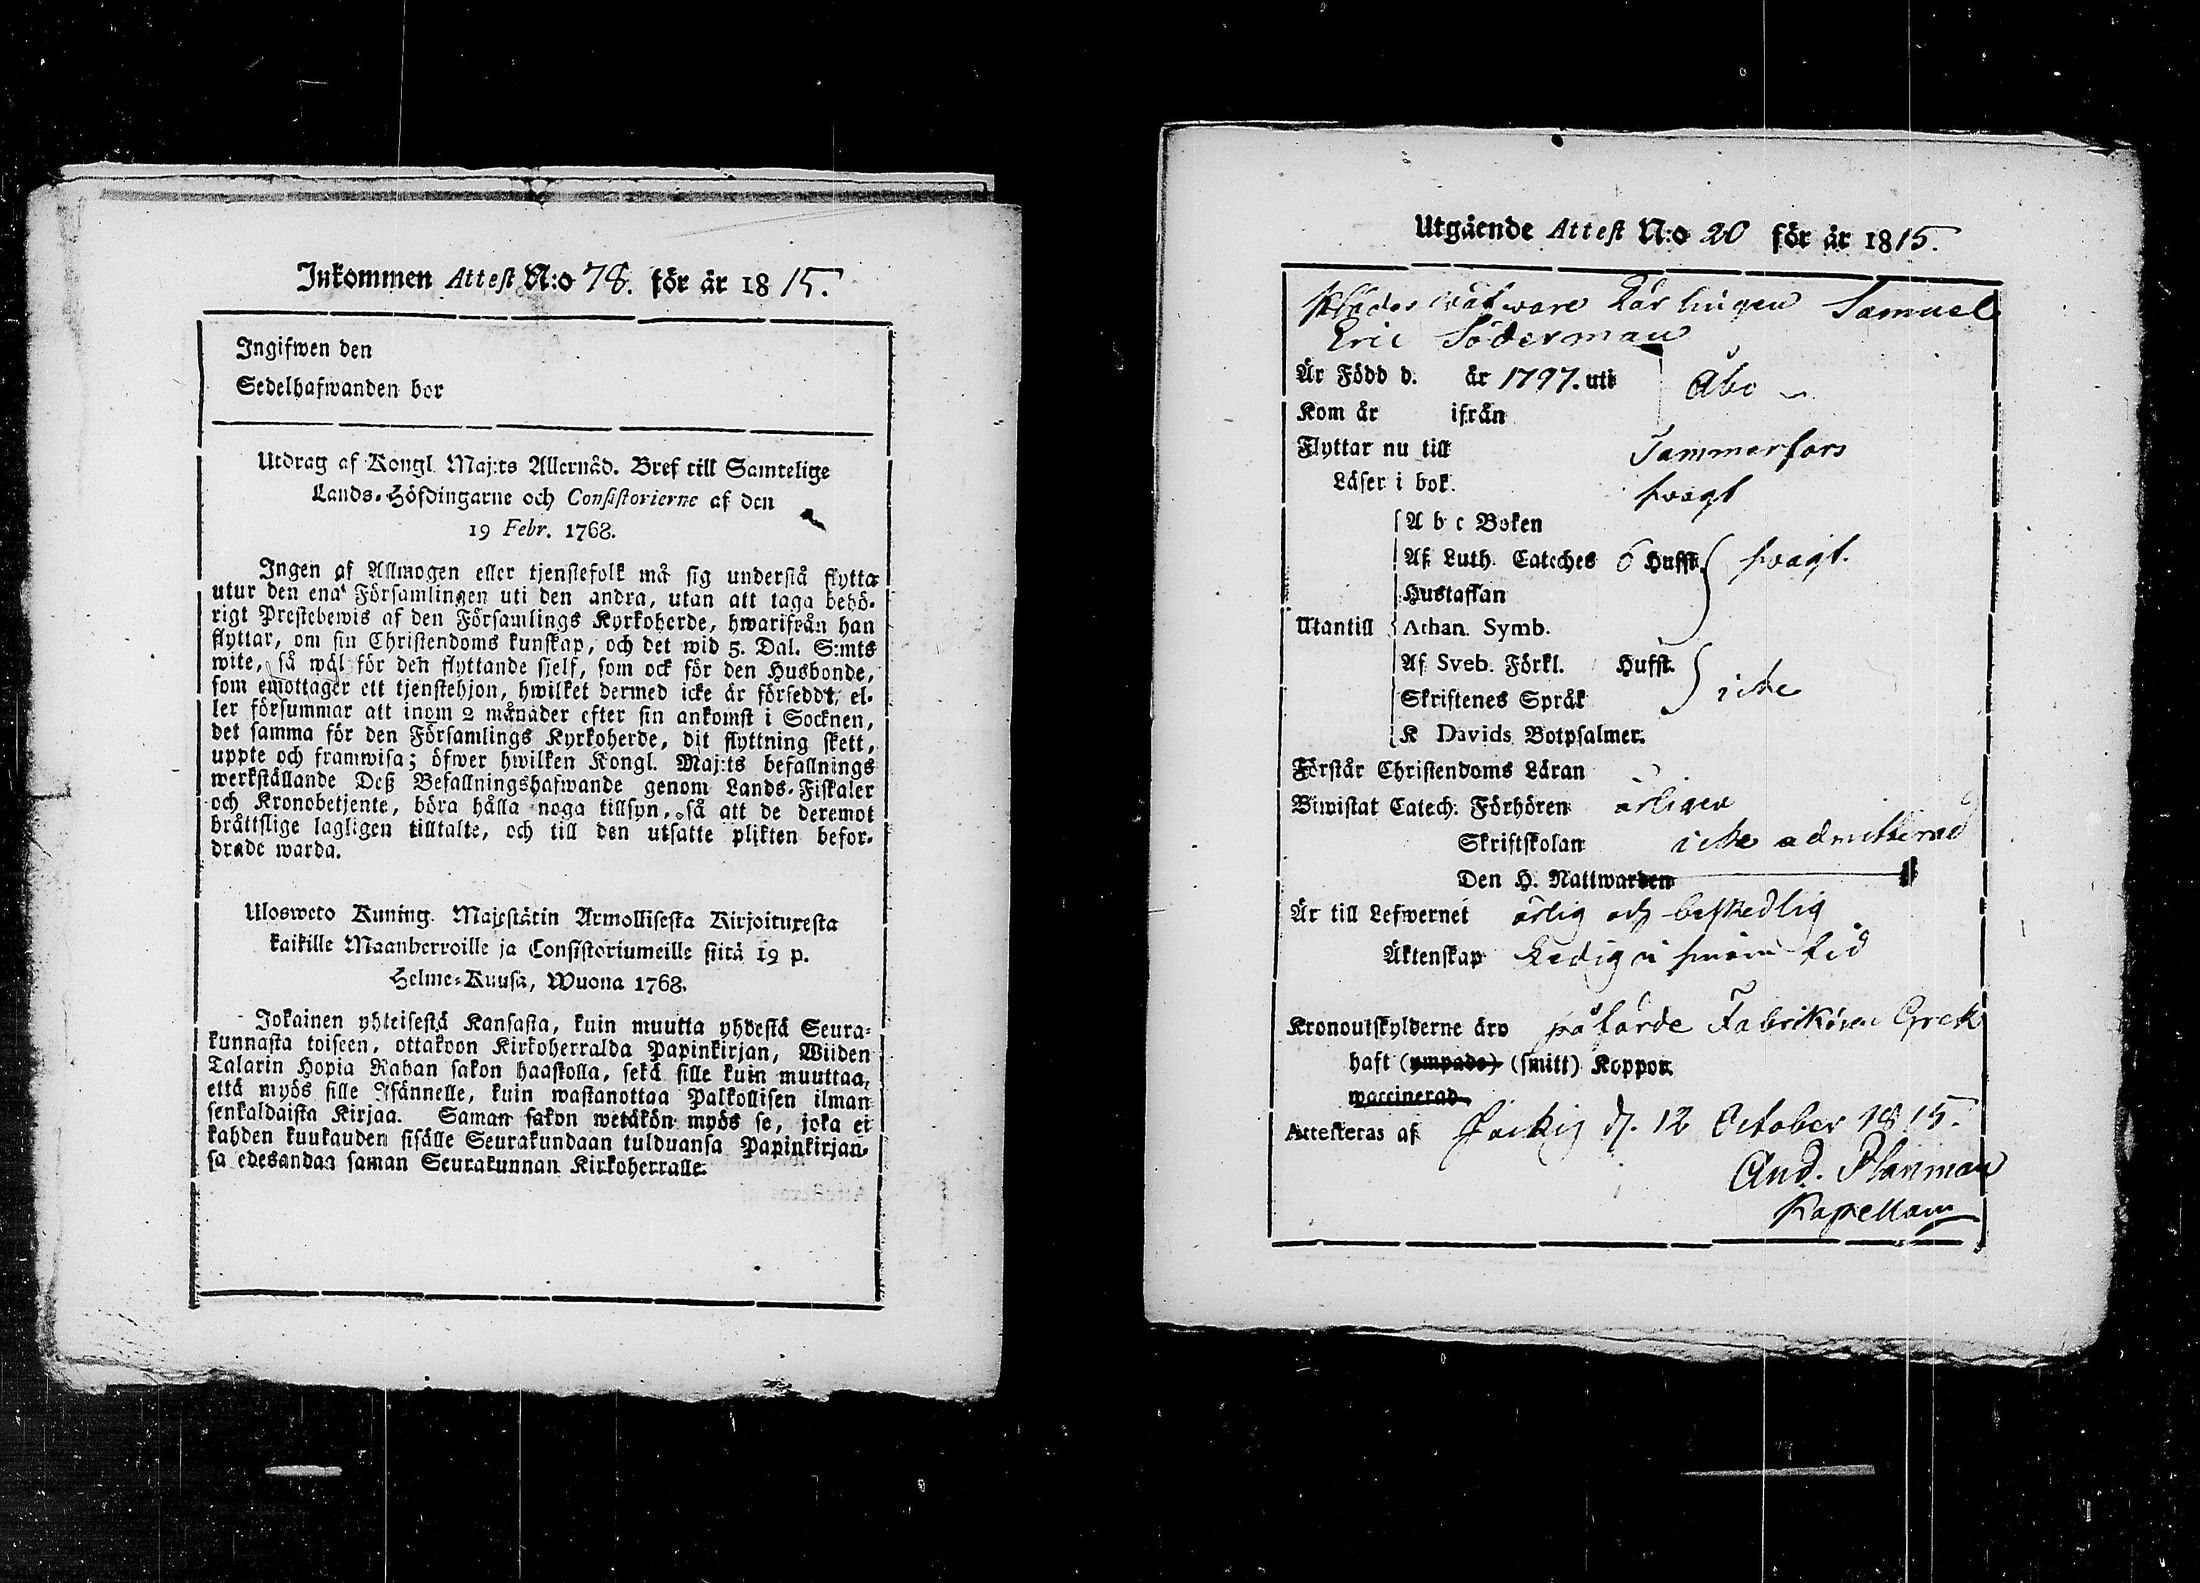 Inkommen Attest N:o 78. för år 1815.
Ingifwen den
Sedelhafwanden bor
Utdrag af Kongl. Maj:ts Allernåd. Bref till Samtelige
Lands-Höfdingarne och Consistorierne af den
19 Febr. 1768.
Ingen af Allmogen eller tjenstefolk må sig understå flytta
utur den ena Församlingen uti den andra, utan att taga behö-
rigt Prestebewis af den Församlings Kyrkoherde, hwarifrån han
flyttar, om sin Christendoms kunskap, och det wid 5. Dal. S:mts
wite, så wäl för den flyttande sjelf, som ock för den Husbonde,
som emottager ett tjenstehjon, hwilket dermed icke är försedt, el-
ler försummar att inom 2 månader efter sin ankomst i Socknen,
det samma för den Församlings Kyrkoherde, dit flyttning skett,
uppte och framwisa; öfwer hwilken Kongl. Maj:ts befallnings
werkställande Deß Befallningshafwande genom Lands-Fiskaler
och Kronobetjente, böra hålla noga tillsyn, så att de deremot
bråttslige lagligen tilltalte, och till den utsatte plikten befor-
drade warda.
Ulosweto Kuning. Majestätin Armollisesta Kirjoituxesta
kaikille Maanherroille ja Consistoriumeille siitä 19 p.
Helme-Kuusa, Wuona 1768.
Jokainen yhteisestä Kansasta, kuin muutta yhdestä Seura-
kunnasta toiseen, ottakoon Kirkoherralda Papinkirjan, Wiiden
Talarin Hopia Rahan sakon haastolla, sekä sille kuin muuttaa,
että myös sille Isännelle, kuin wastanottaa Palkollisen ilman
senkaldaista Kirjaa. Saman sakon wetäkön myös se, joka ei
kahden kuukauden sisälle Seurakundaan tulduansa Papinkirjan-
sa edesandaa saman Seurakunnan Kirkoherralle.
Utgående Attest N:o 20 för år 1815.
Klädes wäfware Lärlingen Samuel
Eric Söderman
Är Född d. år 1797. uti Åbo
Kom år ifrån
Flyttar nu till Tammerfors
Läser i bok. swagt
A b c Boken
Af Luth. Cateches 6 Hufst. swagt.
Hustaflan
Utantill Athan. Symb.
Af Sveb. Förkl. Hufst.
Skriftenes Språk icke
K Davids Botpsalmer.
Förstår Christendoms Läran
Biwistat Catech. Förhören årligen
Skriftskolan icke admitterad
Den H. Nattwarden
Är till Lefwernet ärlig och beskedlig
Äktenskap Ledig i tid
Kronoutskylderne äro påförde Fabrikören
haft (ympade) (smitt) Koppor.
waccinerad.
Attesteras af d. 12 October 1815.
And. Planman
Kapellan